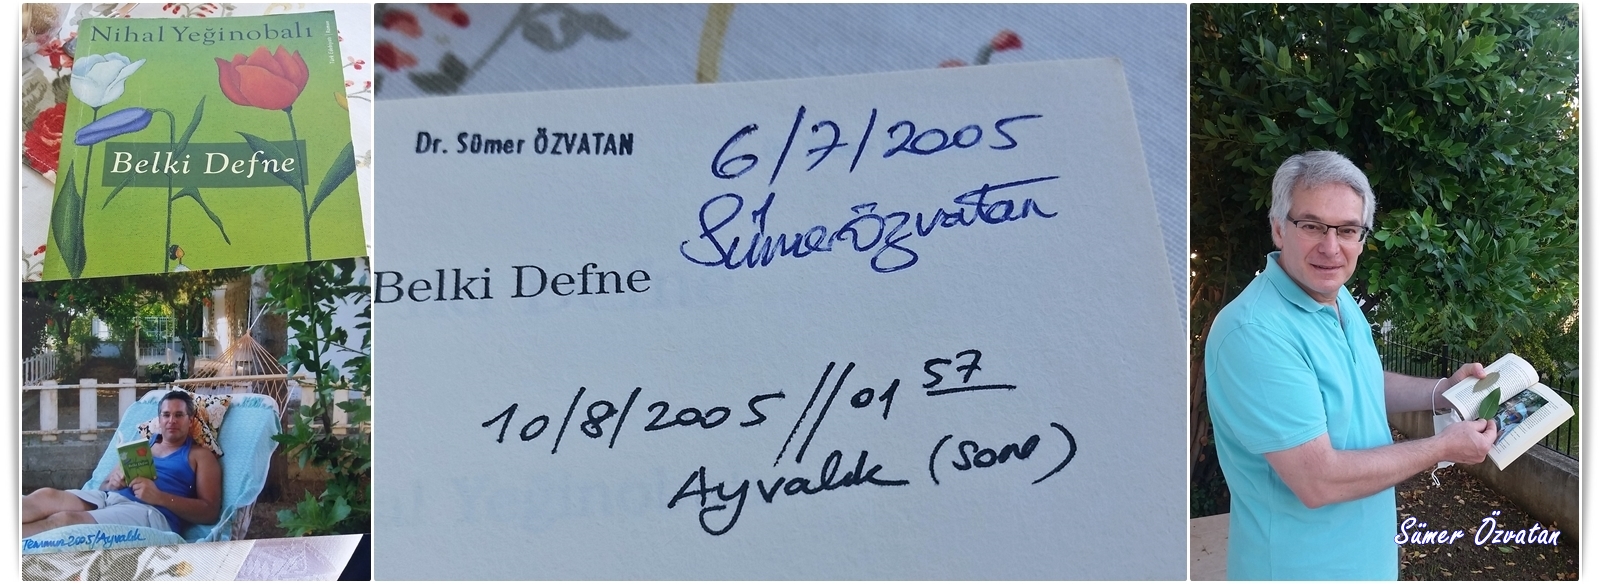 Nihal Yeğinobalı
Belki Defne
Temmuz 2005/Ayvalık
Dr. Sümer ÖZVATAN
6/7/2005
Sümer Özvatan
Belki Defne
10/8/2005//01 57
Ayvalık (sone)
Sümer Özvatan